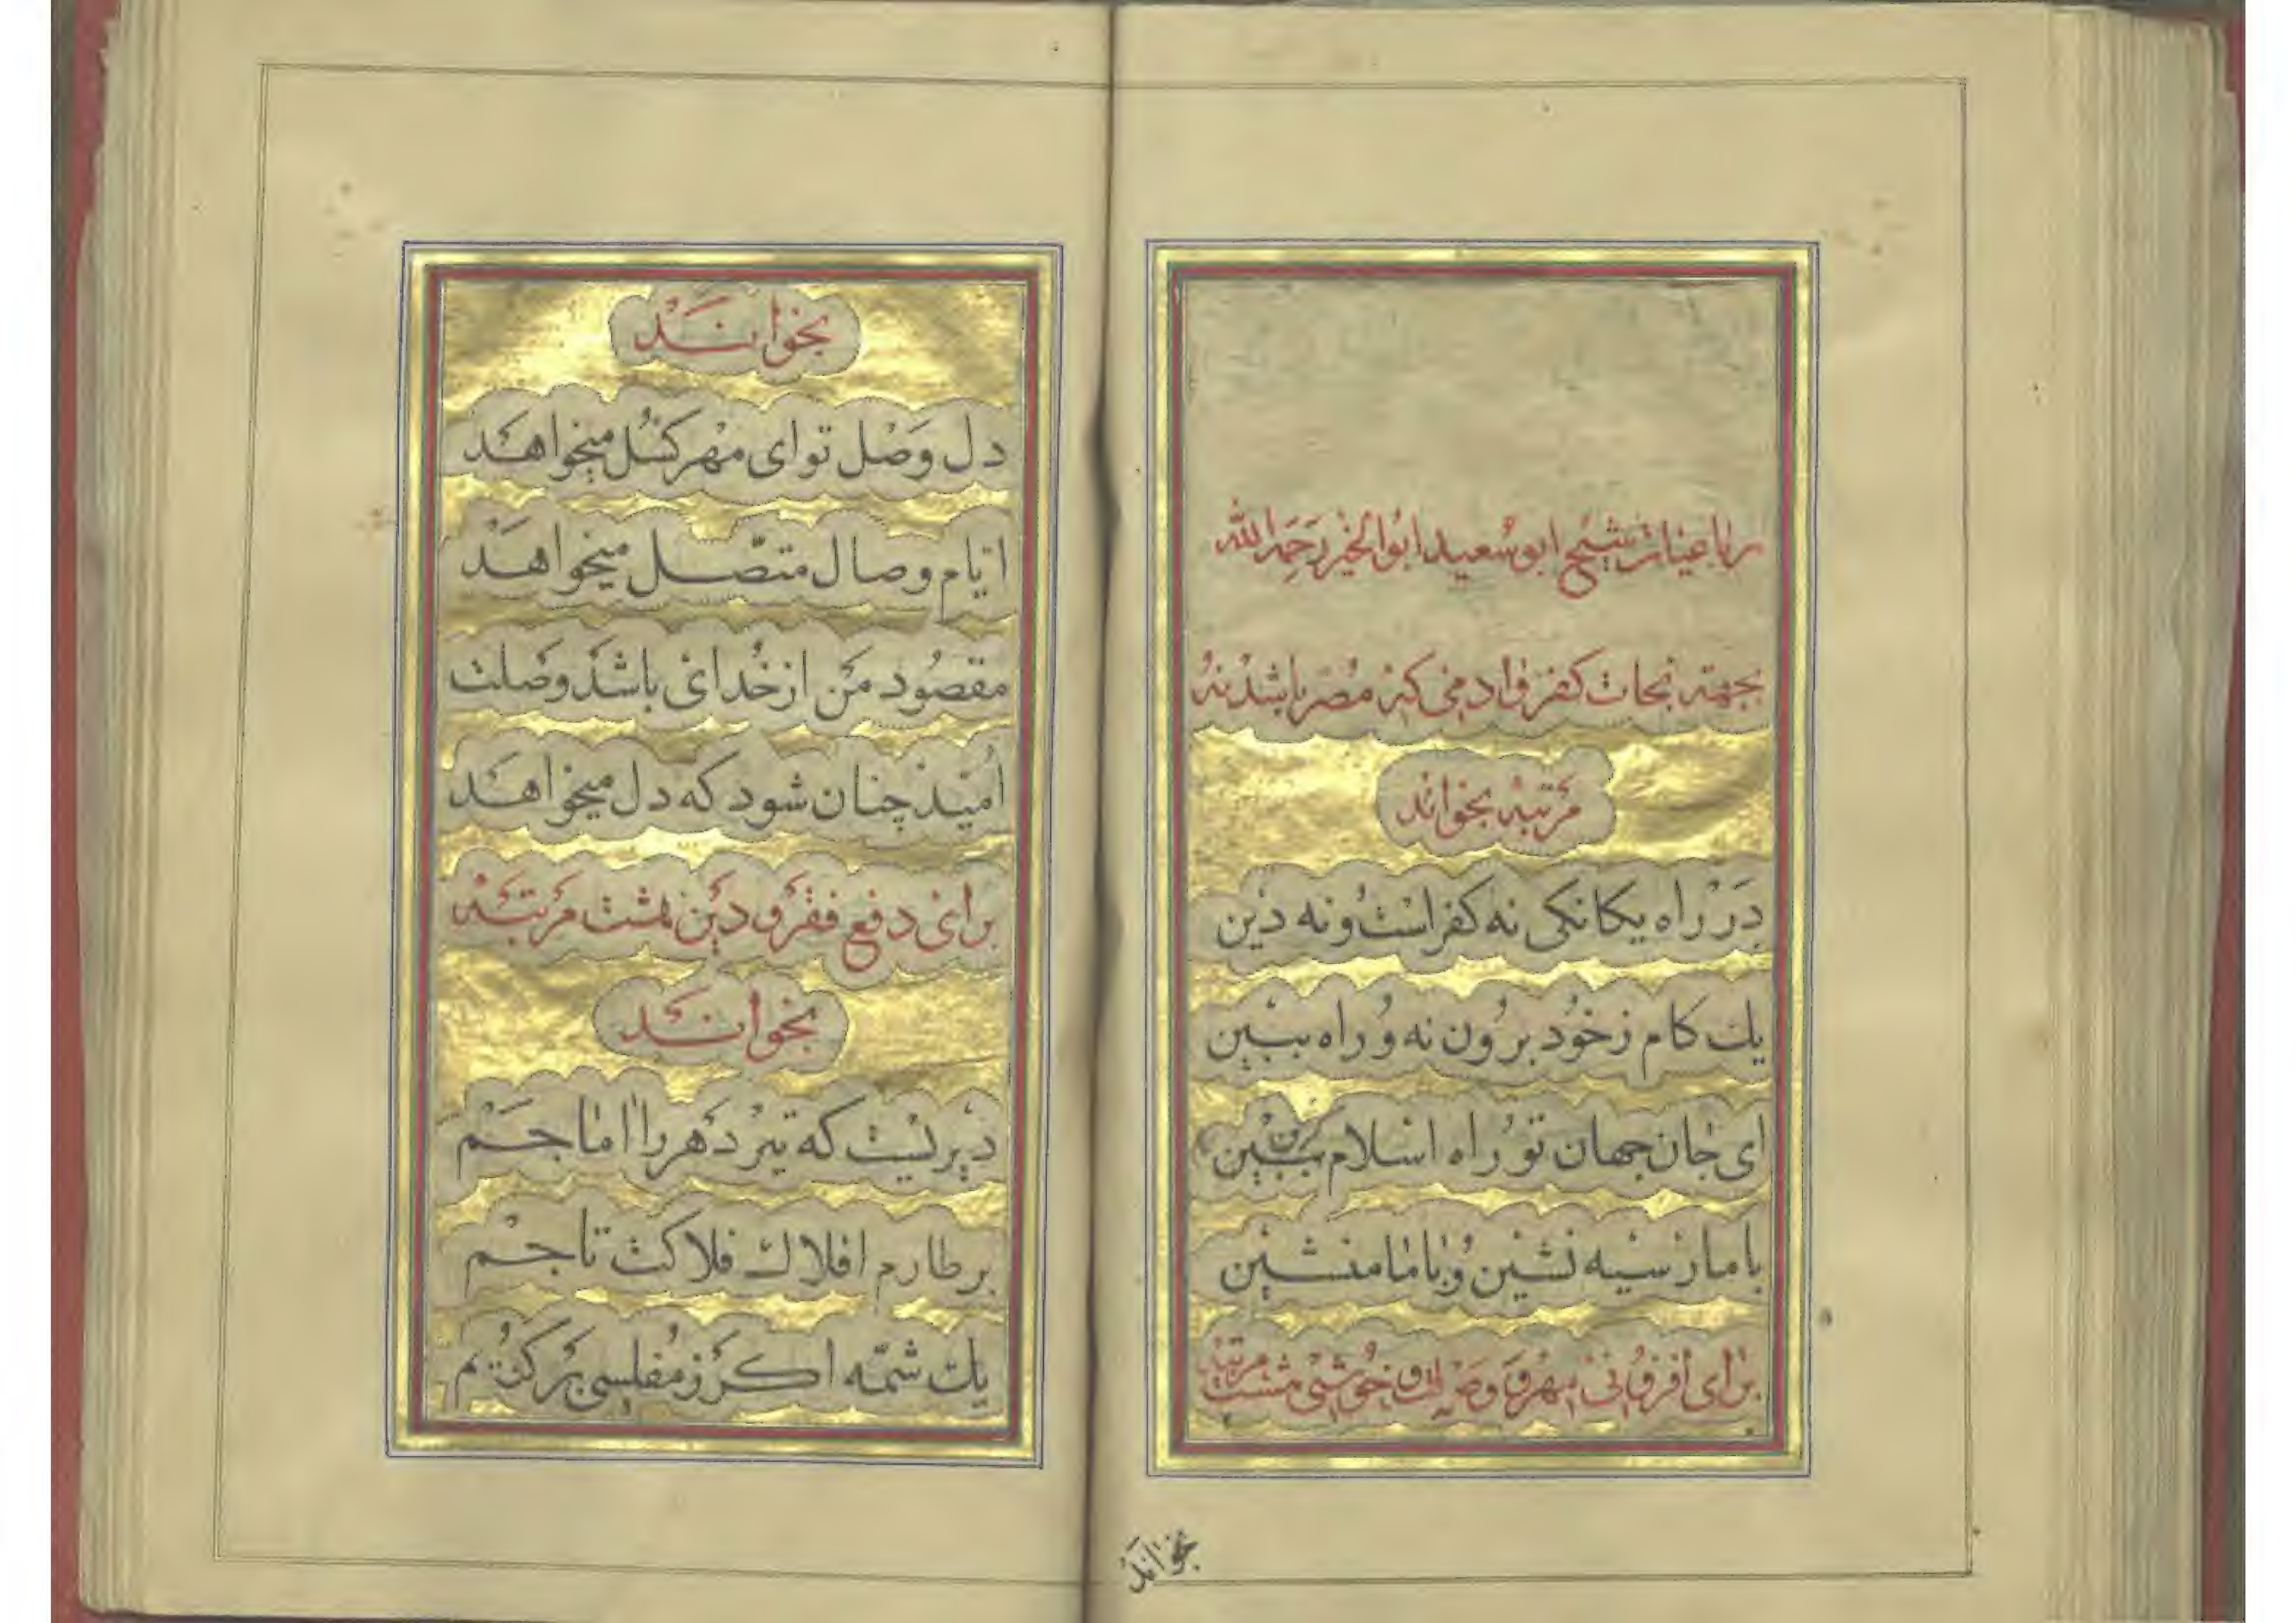 رباعیات شیخ ابو سعید ابوالخیر رحمه الله
بجهته نجات کفر و ادمی که مصر باشد نه
مرتبه بخواند
در راه یکانکی نه کفر است و نه دین
یک کام ز خود برون نه و راه ببین
ای جان جهان تو راه اسلام کزین
با مار سیه نشین و با ما منشین
برای افزونی مهر و وصلت و خوشی هشت مرتبه
بخواند
بخواند
دل وصل تو ای مهر کسل میخواهد
ایام وصال متصل میخواهد
مقصود من از خدای باشد وصلت
امید چنان شود که دل میخواهد
برای دفع فقر و دین هشت مرتبه
بخواند
دیریست که تیر دهر را اماجم
بر طارم افلاک فلاکت تاجم
یک شمه اکر ز مفلسی بر کویم